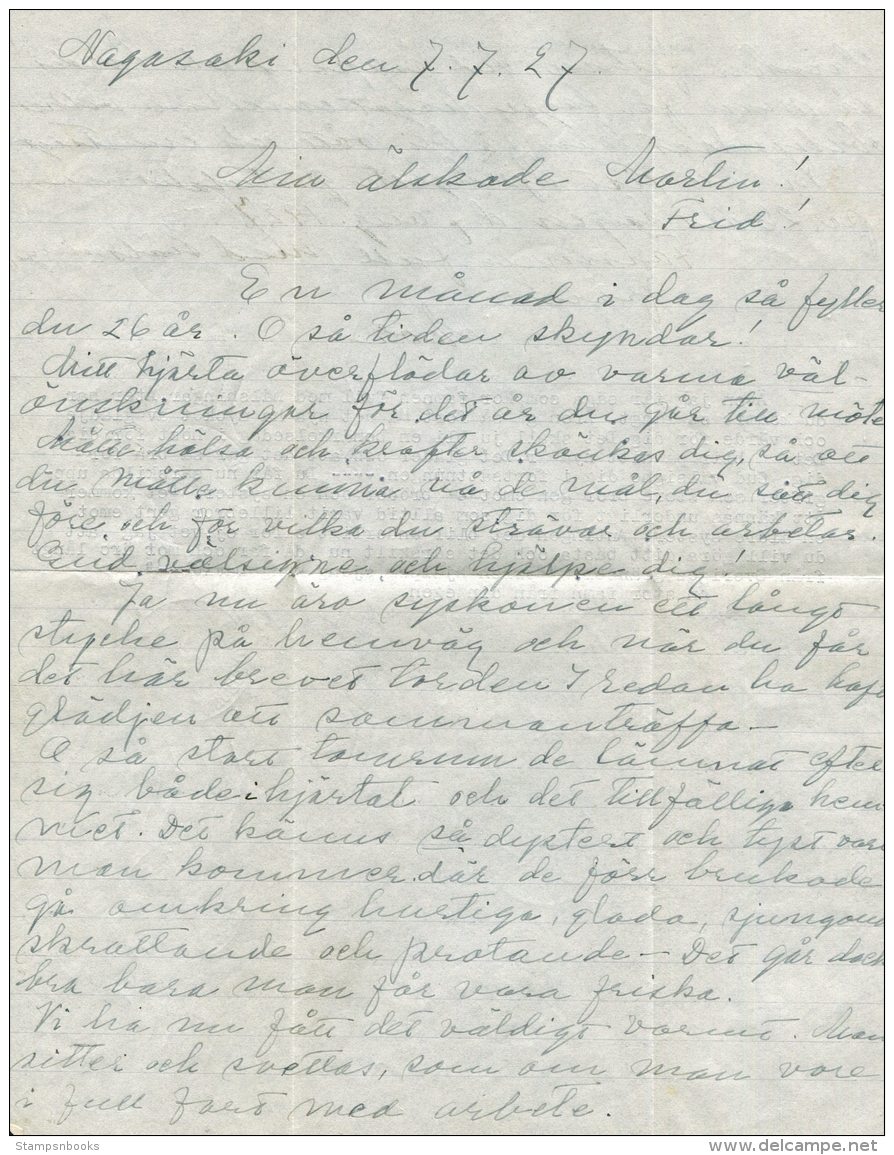 Nagasaki den 7.7.27.
Min älskade Martin!
Frid!
En månad i dag så fyller
du 26 år. O så tiden skyndar!
Mitt hjärta överflödar av varma väl-
önskningar för det år du går till möte
Måtte hälsa och krafter skänkas dig, så att
du måtte kunna nå de mål, du satt dig
före och för vilka du strävar och arbetar.
Gud välsigne och hjälpe du dig!
Ja nu äro syskonen ett långt
stycke på hemväg och när du får
det här brevet torden I redan ha haft
glädjen att sammanträffa—
O så stort tomrum de lämnat efter
sig både i hjärtat och det tillfälliga hem
met. Det känns så dystert och tyst vart
man kommer där de förr brukade
gå omkring hurtiga, glada, sjungand
skrattande och pratande — Det går dock
bra bara man får vara friska.
Vi ha nu fått det väldigt varmt. Man
sitter och svettas, som om man vore
i full fart med arbete.
Stampsnbooks
www.delcampe.net